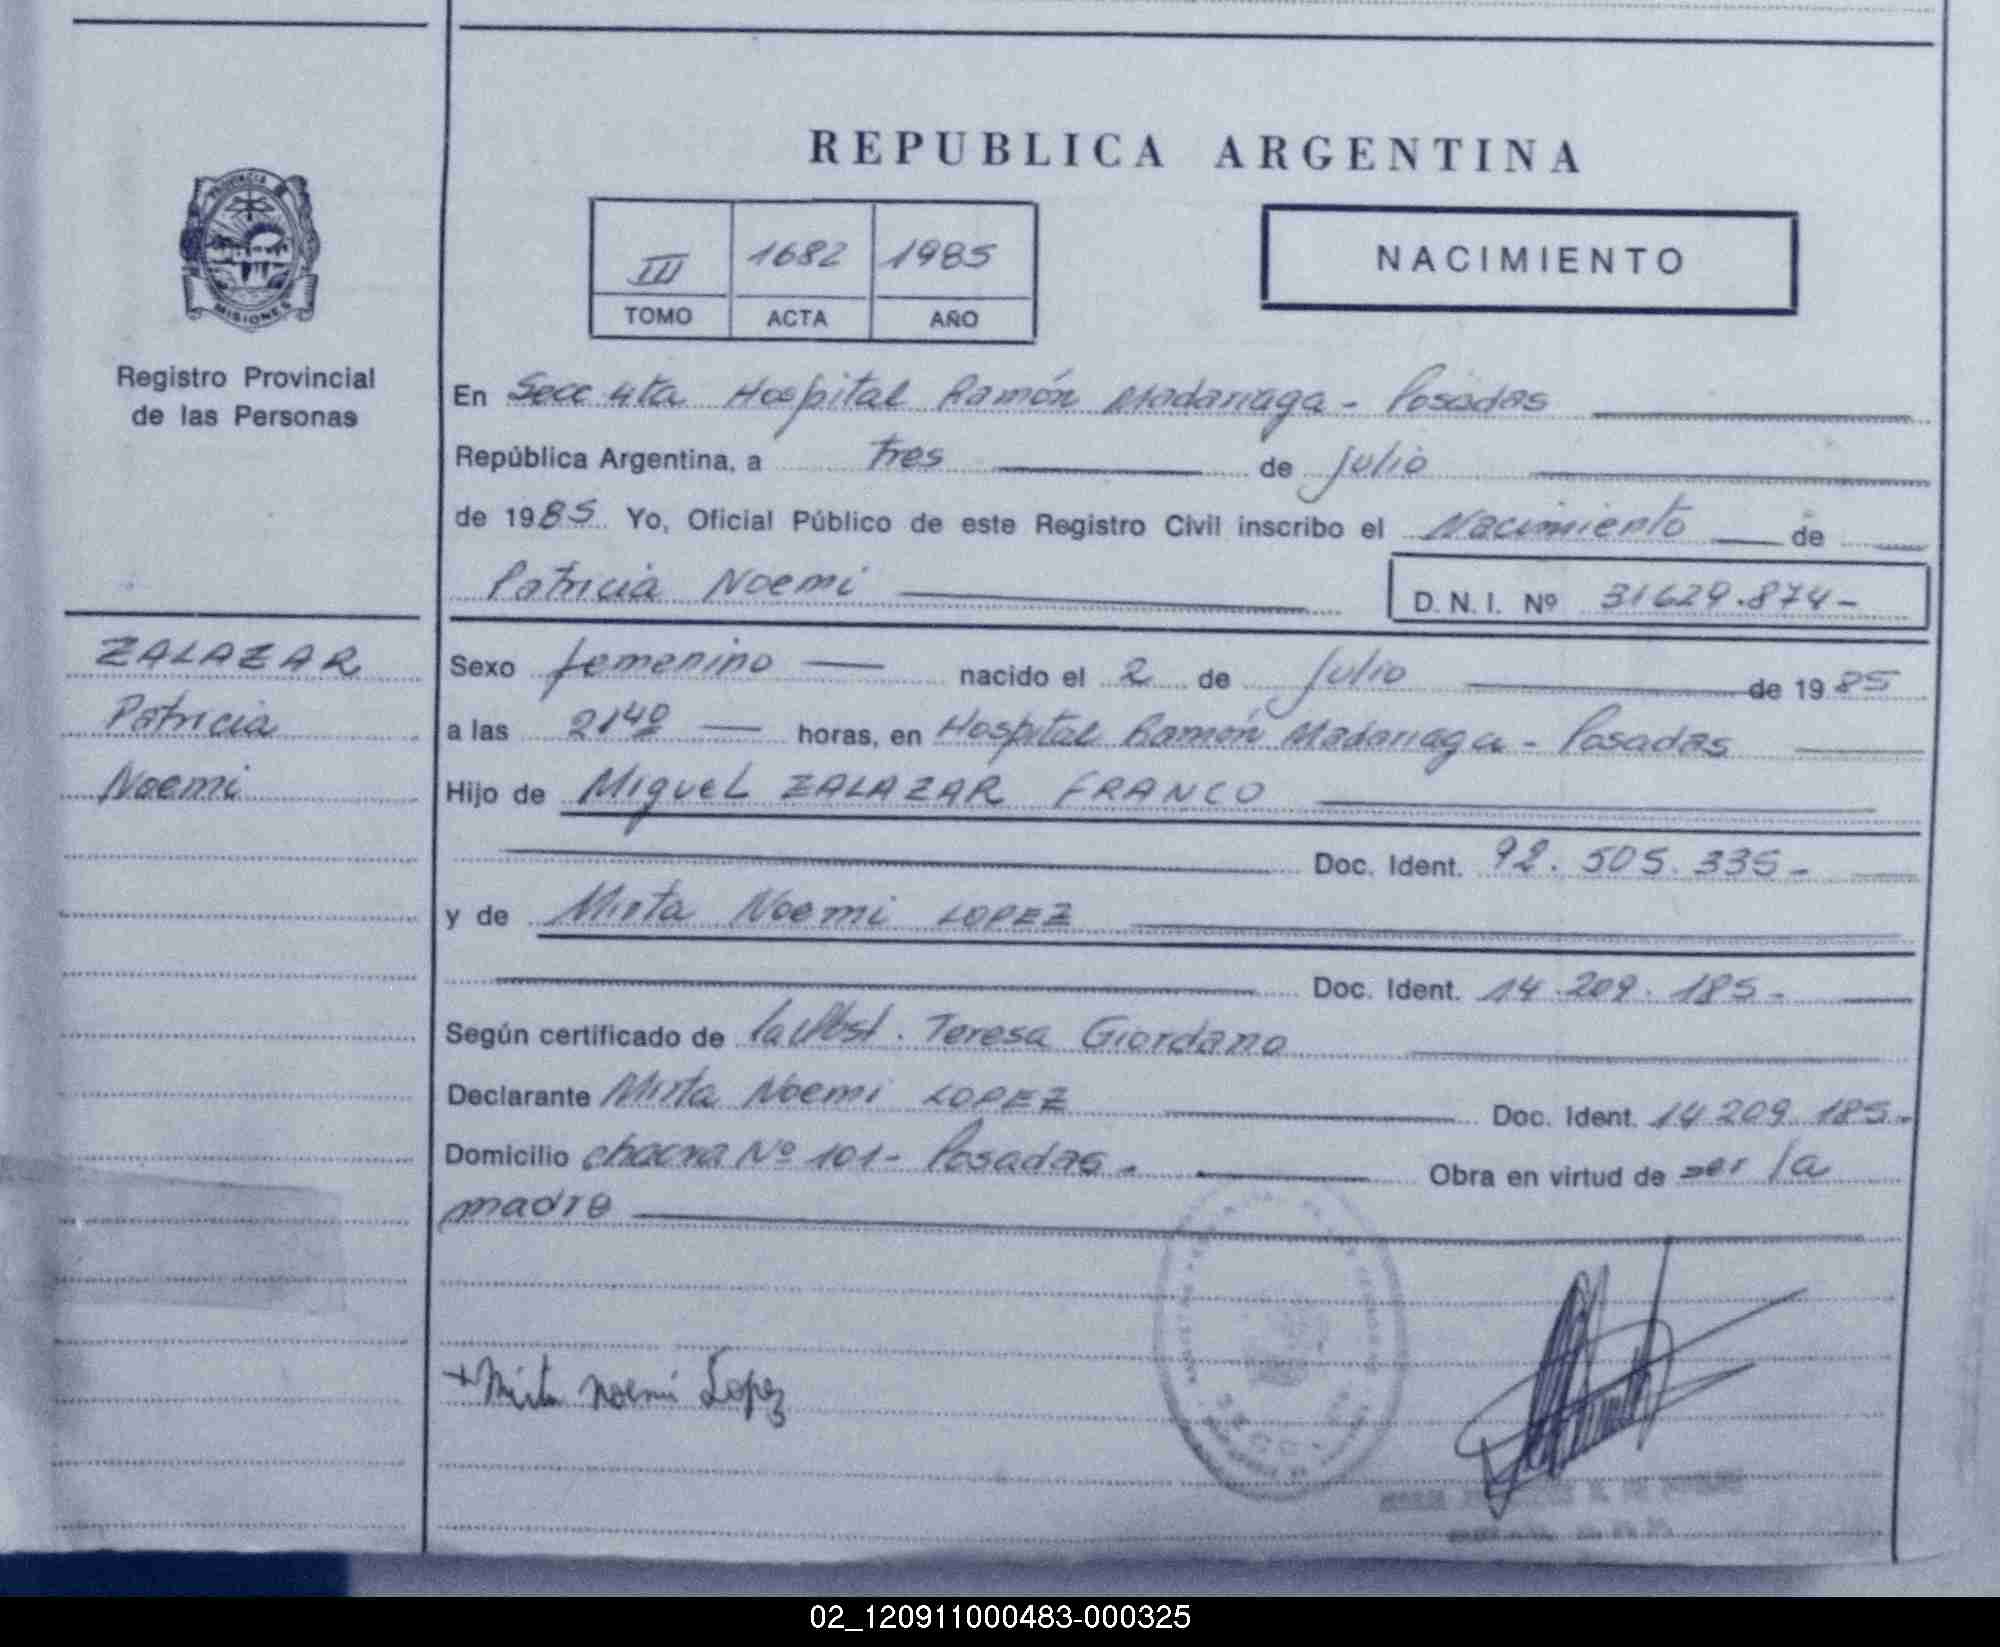 REPUBLICA ARGENTINA
PROVINCIA DE
MISIONES
Registro Provincial
de las Personas
III 1682 1985
TOMO ACTA AÑO
NACIMIENTO
En Secc 4ta Hospital Ramón Madariaga - Posadas
República Argentina, a tres de julio
de 1985 Yo, Oficial Público de este Registro Civil inscribo el Nacimiento de
Patricia Noemi D.N.I. Nº 31629.874-
ZALAZAR
Patricia
Noemi
Sexo femenino nacido el 2 de julio de 1985
a las 21 40 horas, en Hospital Ramón Madariaga - Posadas
Hijo de Miguel ZALAZAR FRANCO
Doc. Ident. 92.505.335-
y de Mirta Noemi LOPEZ
Doc. Ident. 14.209.185-
Según certificado de la Obst. Teresa Giordano
Declarante Mirta Noemi LOPEZ Doc. Ident. 14 209 185-
Domicilio chacra Nº 101 - Posadas - Obra en virtud de ser la
madre
+ Mirta Noemi Lopez
02_120911000483-000325